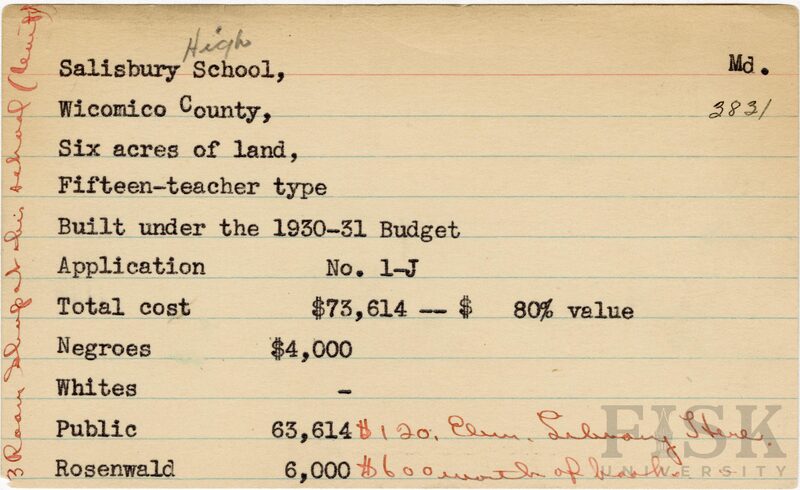 High
Salisbury School, Md.
Wicomico County, 3831
Six acres of land,
Fifteen-teacher type
Built under the 1930-31 Budget
Application No. 1-J
Total cost $73,614 -- $ 80% value
Negroes $4,000
Whites -
Public 63,614 $120. Elem. Library Here
Rosenwald 6,000 $600 worth of books.
3 Room Shop at this school
FISK
UNIVERSITY